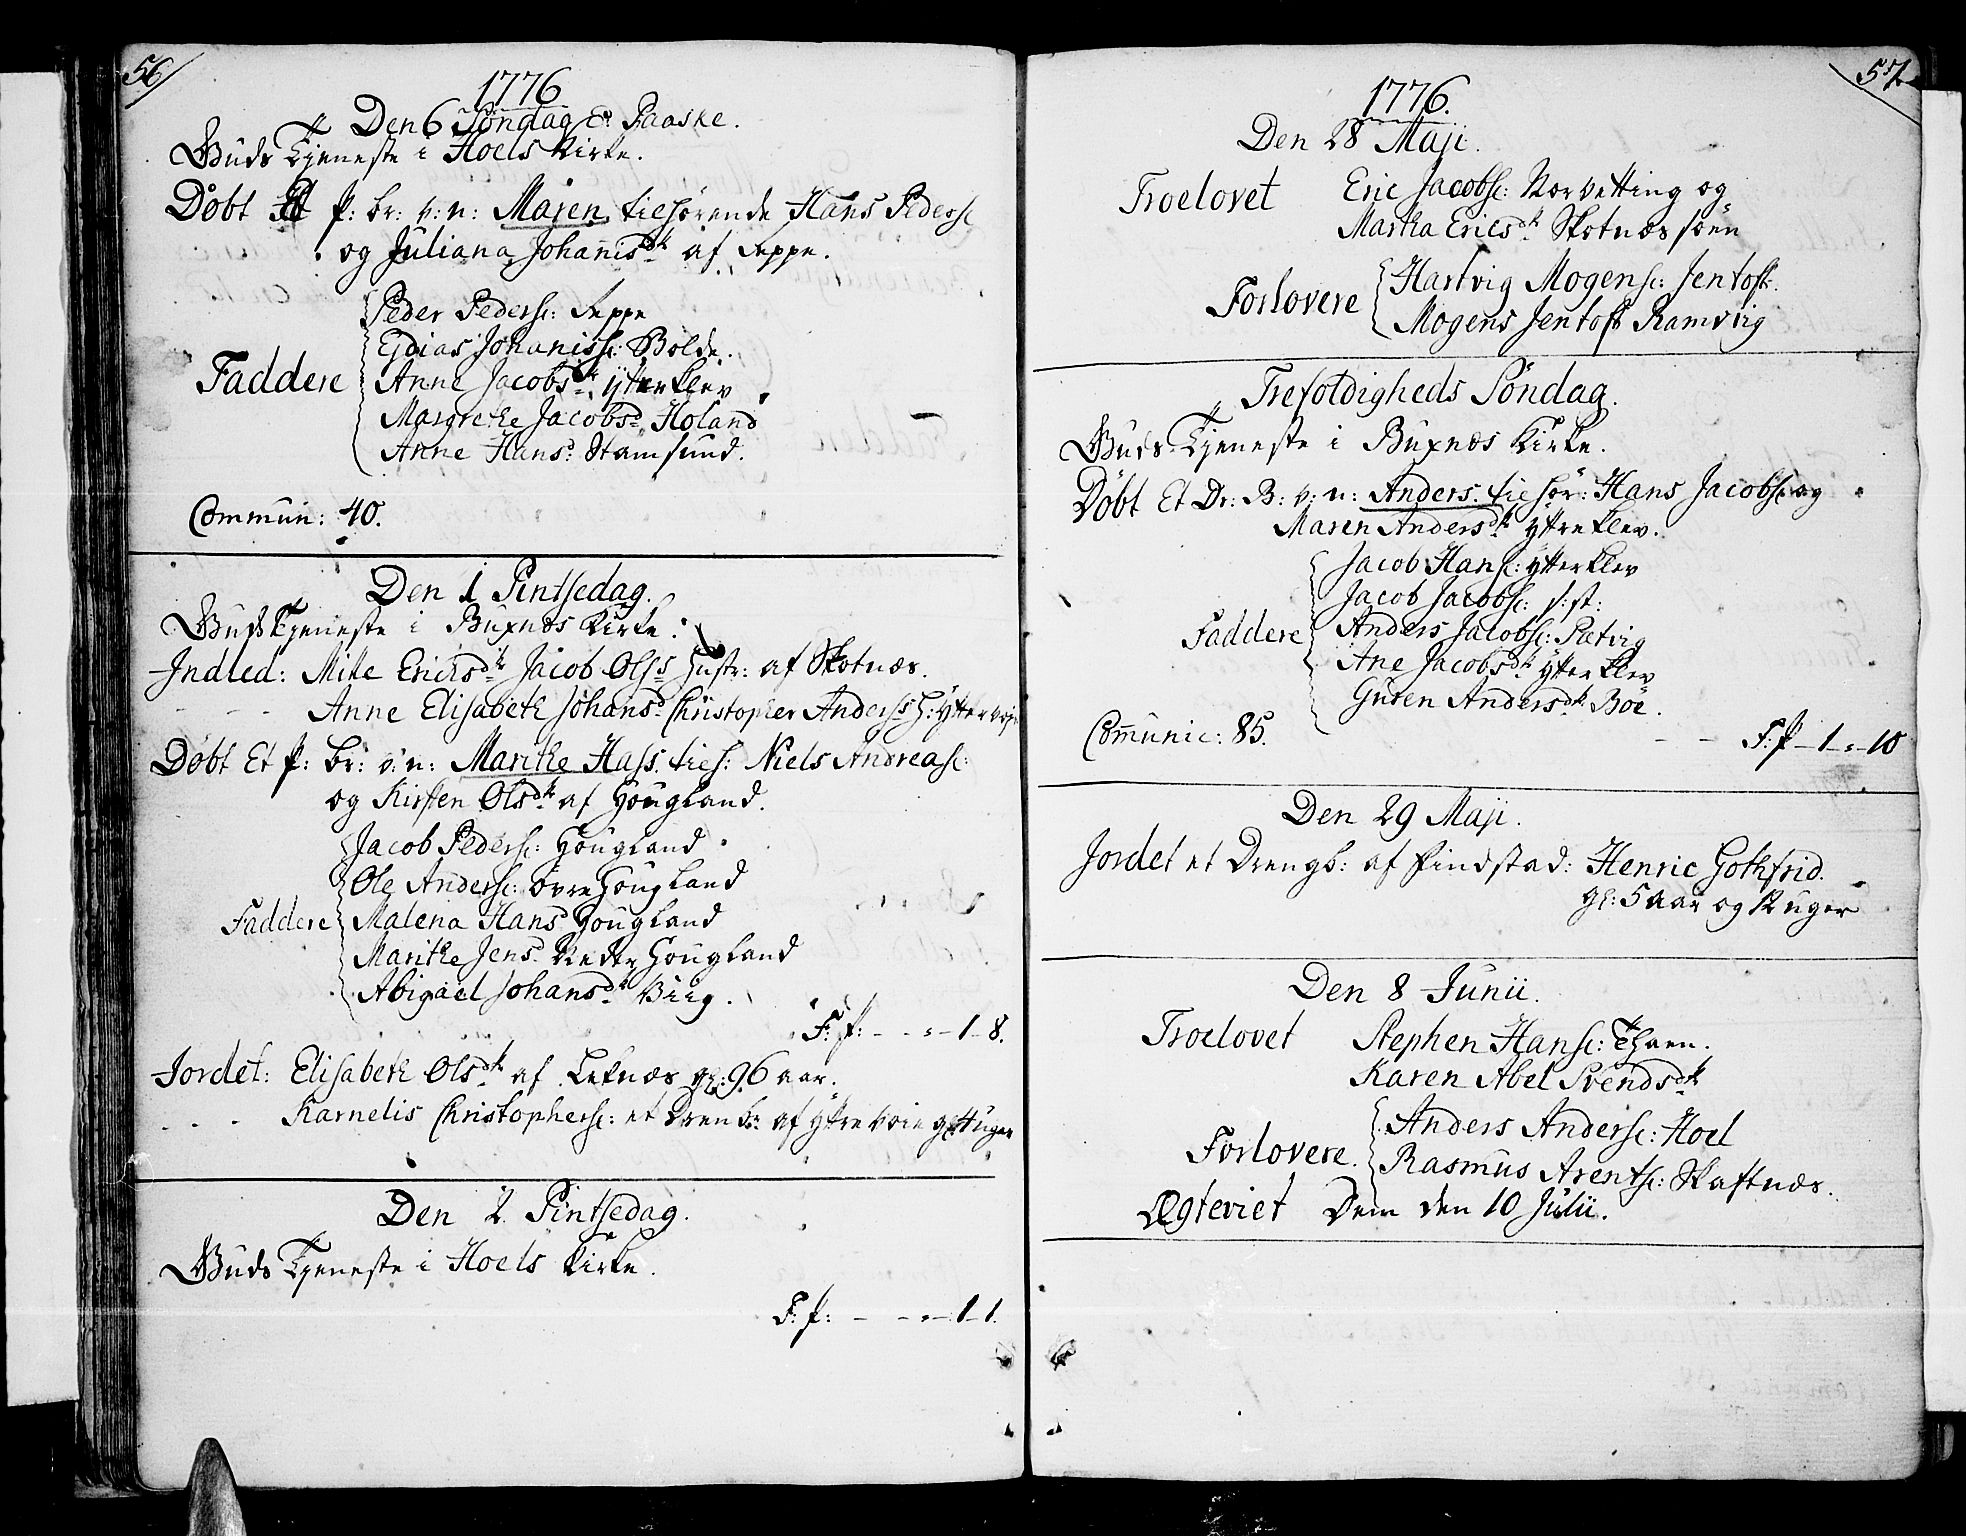 56
1776
Den 6 Söndag E. Paaske.
Guds Tjeneste i Hoels Kirke.
Döbt Et P: br: v: n: Maren tilhörende Hans Pederse
og Juliana Johanisd: af Leppe.
Peder Pederse: Leppe
Edias Johanisse: Bolde.
Faddere Anne Jacobsd: ytterklev
Margrethe Jacobsd: Holand
Anne Hansd: Stamsund.
Commun: 40.
Den 1 Pintsedag.
Guds Tjeneste i Buxnæs Kirke.
Indled: Mike Ericksd: Jacob Olss Hustr: af Skotnæs.
- - - Anne Elisabeth Johansd: Christopher Anderss H: Yttervoje
Döbt Et P: br: v: n: Marithe Hass. tilh: Niels Andrease:
og Kirsten Olsd: af Hougland.
Jacob Pederse: Hougland
Ole Anderse: övre Hougland
Faddere Malena Hans Hougland
Marithe Jensd: Neder Hougland
Abigael Johansd: Viig.
F: P: - - - 1 - 8.
Jordet: Elisabeth Olsd: af Leknæs gl: 96 aar.
- - - Karnelis Christopherse: et Dren br: af Yttrevoie gl: uger
Den 2. Pintsedag.
Guds Tjeneste i Hoels Kirke.
F: P: - - - 1 - 1.
57
1776.
Den 28 Maji.
Troelovet Eric Jacobse: Korvetting og
Martha Ericsd: Skotnæs söen
Forlovere Hartvig Mogense: Jentoft.
Mogens Jentoft Ramsvig
Trefoldigheds Söndag.
Guds Tjeneste i Buxnæs Kirke.
Döbt Et Dr: B: v: n: Anders. tilhör: Hans Jacobse: og
Maren Andersd: Yttreklev.
Jacob Hanse: ytterklev
Jacob Jacobse: s: st:
Faddere Anders Jacobse: Petvig
Ane Jacobsd: ytterklev
Guren Andersd: Böe.
Communic: 85.
- - F: P - 1 - - 10
Den 29 Maji.
Jordet et Drengb: af Findstad: Henric Gothfrid.
gl: 5 aar og uger
Den 8 Junii.
Troelovet Stephen Hanse:
Karen Abel Svendsd:
Anders Anderse: Hoel
Forlovere. Rasmus Arentse: Skaftnæs.
Ægteviet Dem den 10 Julii.